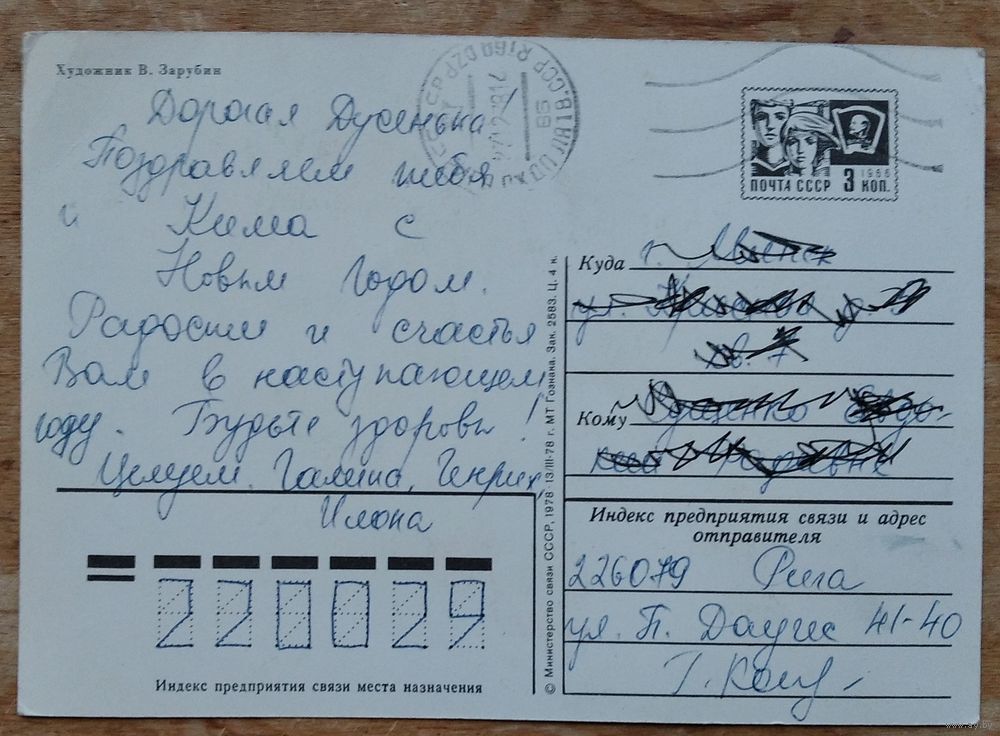 Художник В. Зарубин
Дорогая Дусенька!
Поздравляем тебя
и Кима с
Новым годом.
Радости и счастья
Вам в наступающем
году. Будьте здоровы!
Целуем. Галина, Генрих,
Илона
ПОЧТА СССР 3 КОП.
1966
Куда г. Минск
ул.
кв. 7
Кому
Индекс предприятия связи и адрес
отправителя
226079 Рига
ул. П. Даугес 41-40
Г.
220029
Индекс предприятия связи места назначения
© Министерство связи СССР, 1978 13/III-78 г. МТ Гознака. Зак. 2583. Ц. 4 к.
www.ay.by